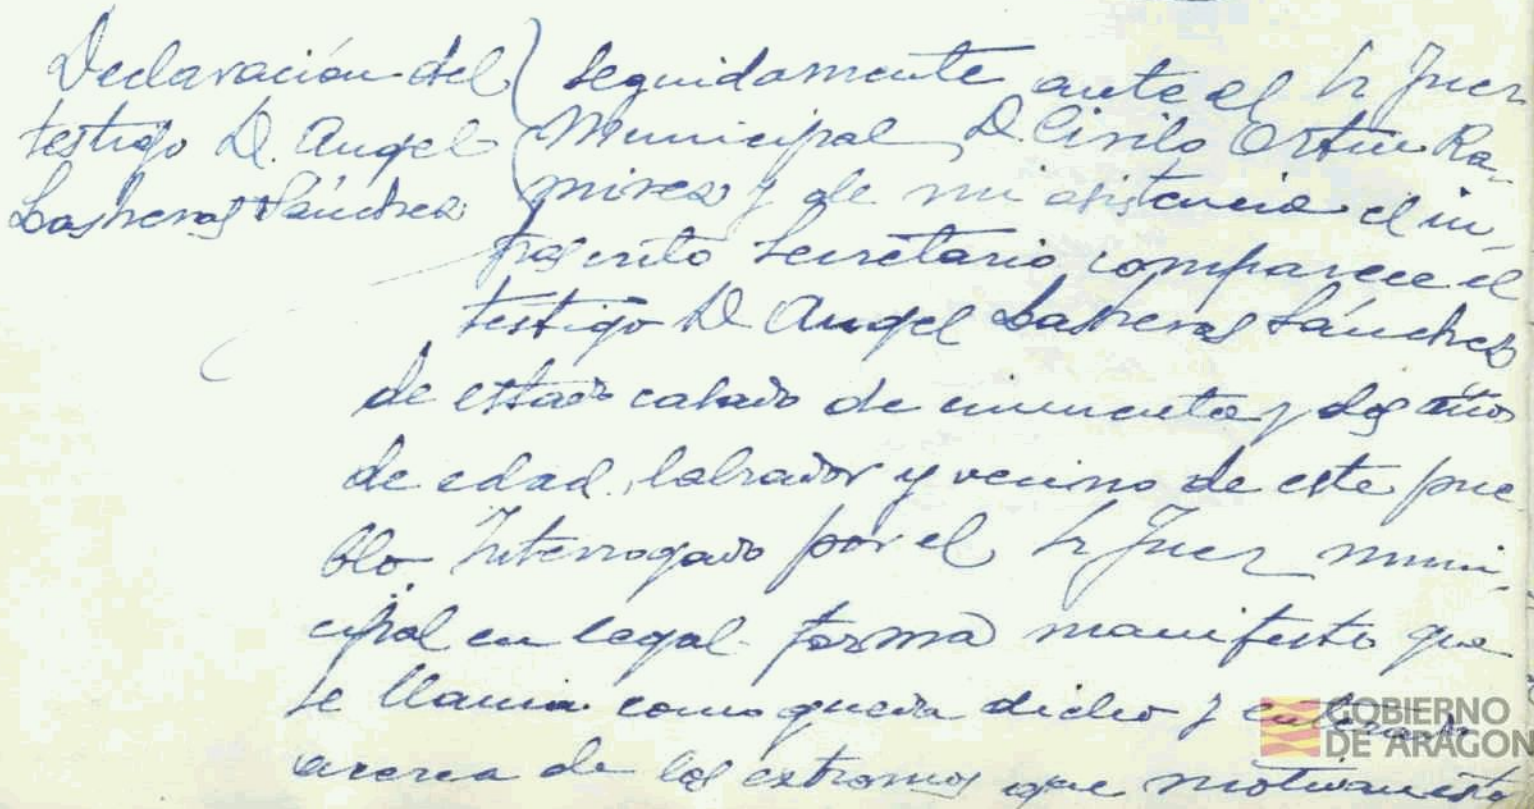 Declaración del
testigo D. Angel
Lasheras Sánchez
Seguidamente ante el Sr Juez
Municipal D. Cirilo Ortin Ra-
mirez y de mi asistencia el in-
frascrito Secretario, comparece el
testigo D Angel Lasheras Sánchez
de estado casado de cincuenta y dos años
de edad, labrador y vecino de este pue
blo. Interrogado por el Sr Juez muni-
cipal en legal forma manifesto que
se llama como queda dicho y enterado
acerca de los extremos que motivan esta
GOBIERNO
DE ARAGON